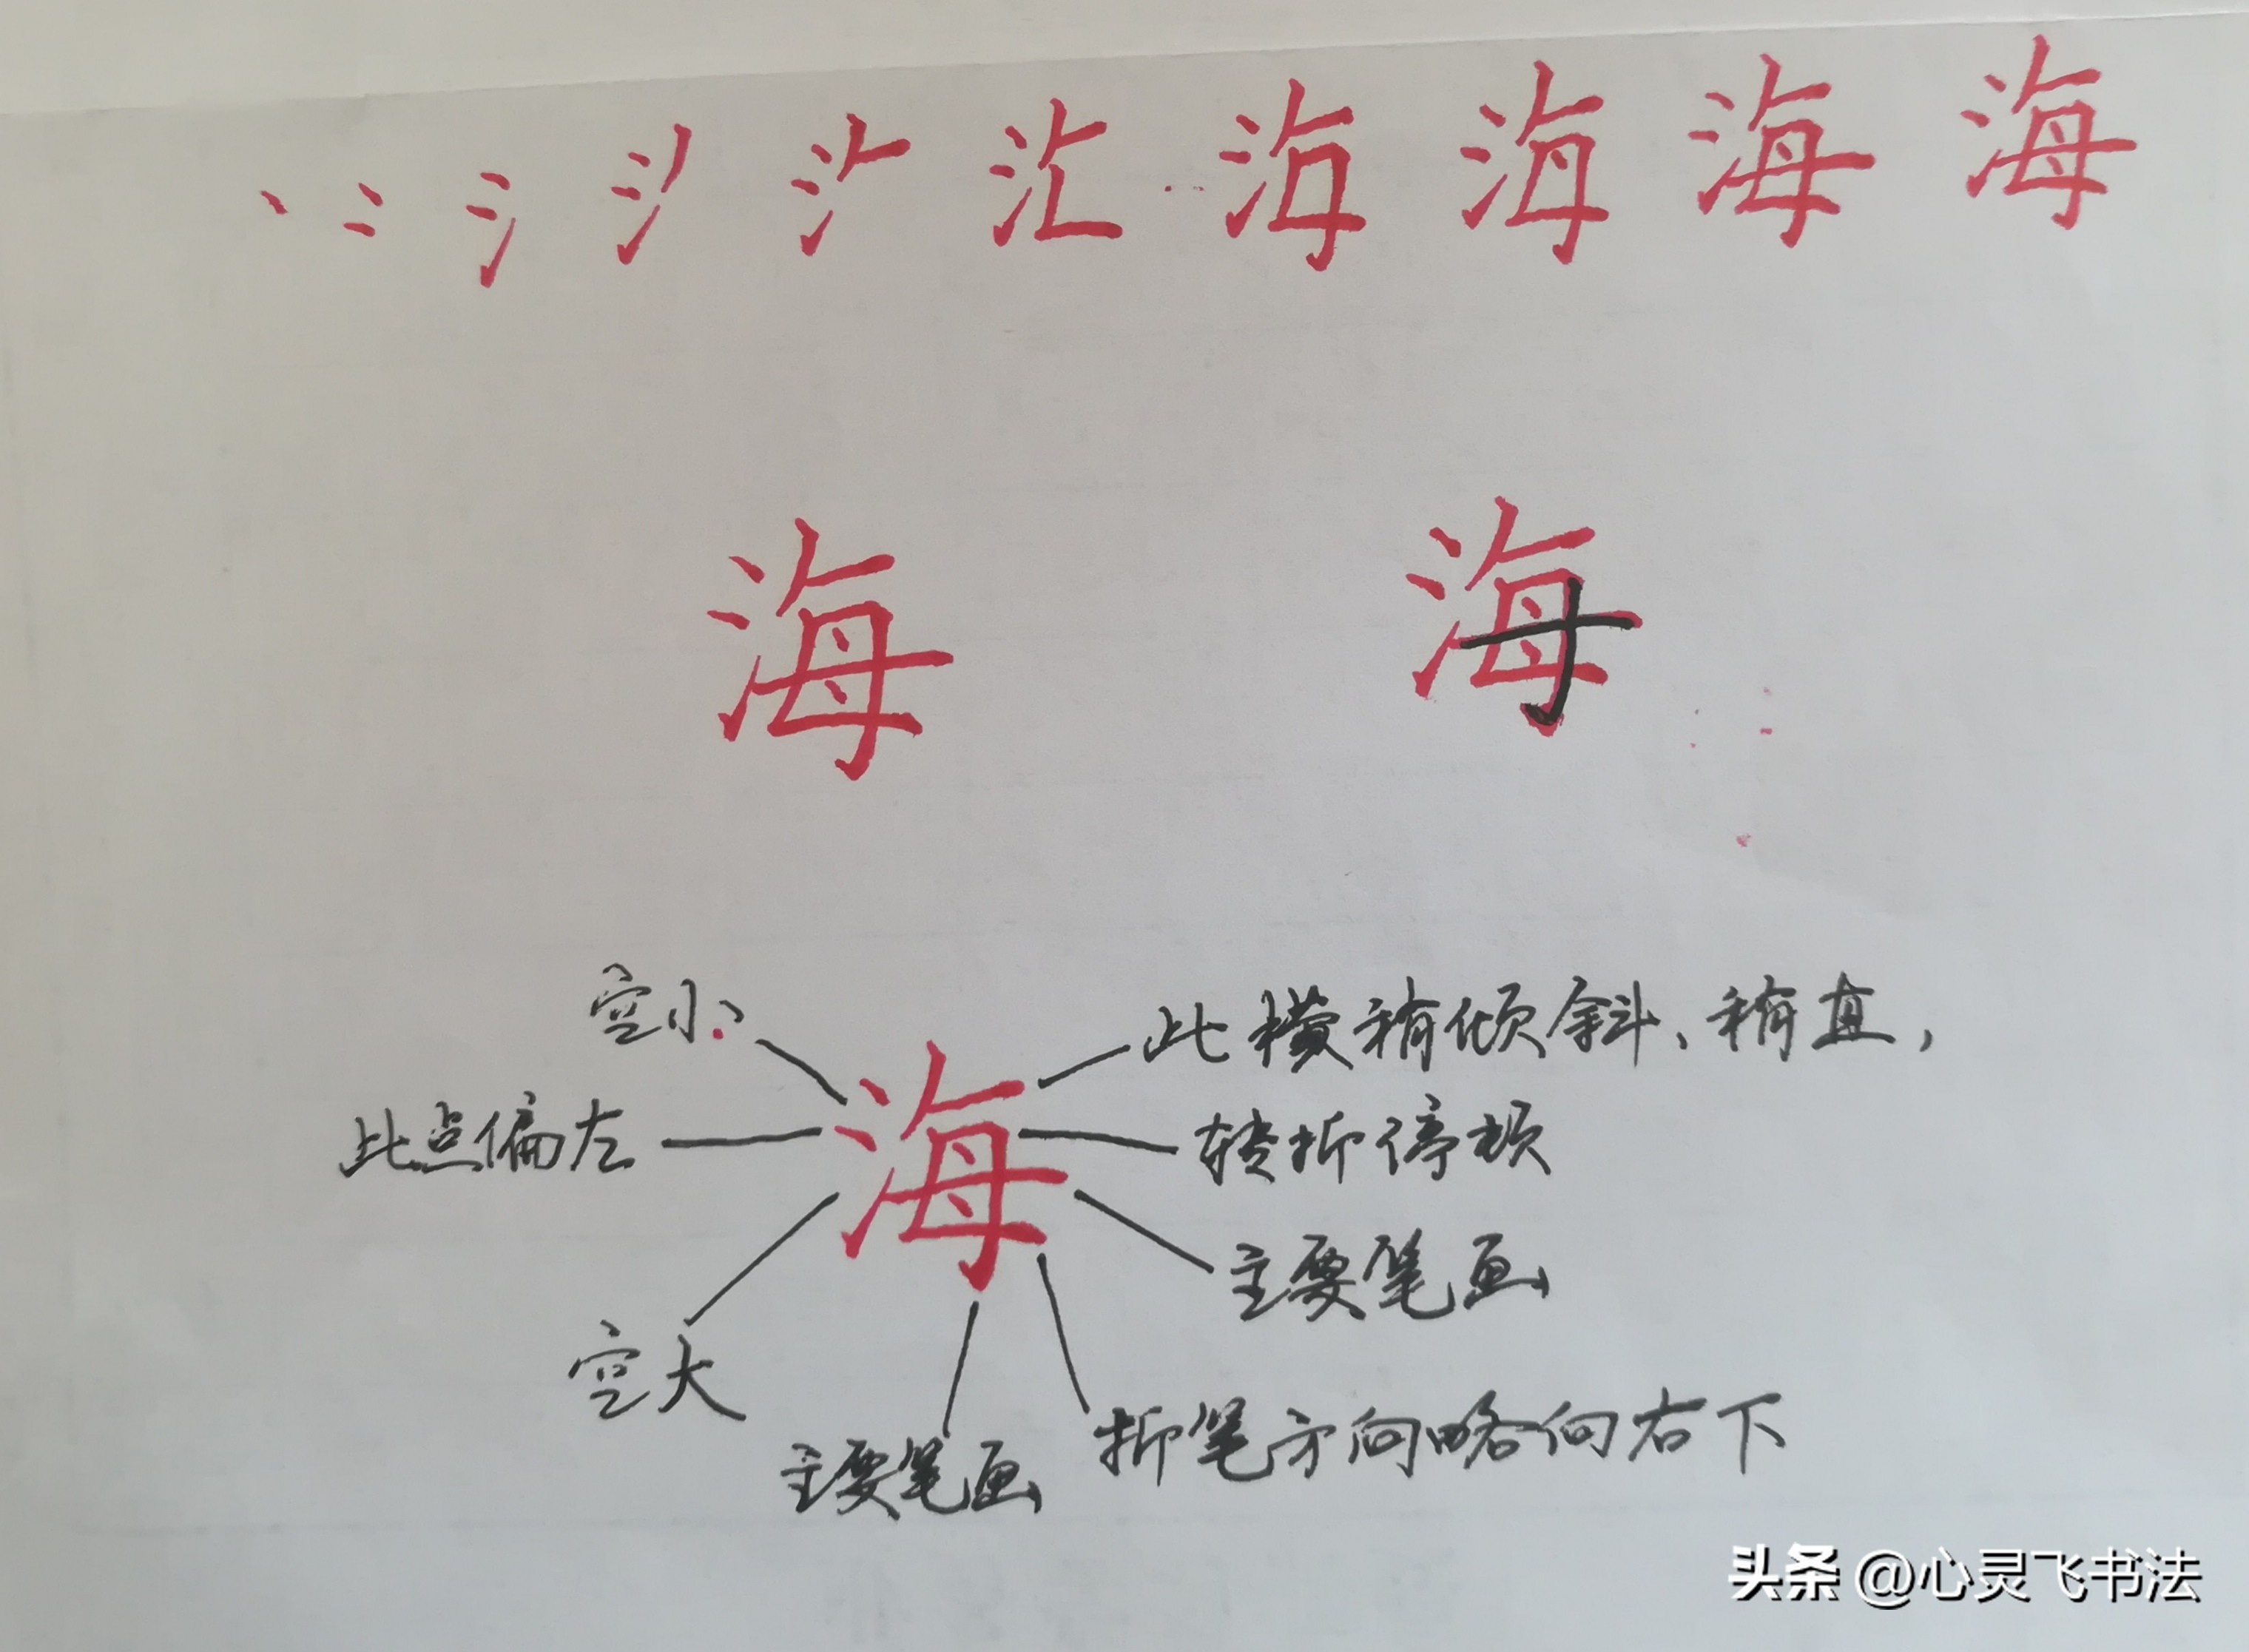 丶 冫 氵 海 海 海 海
海 海
空小
此横稍倾斜、稍直，
此点偏左
转折停顿
主要笔画
空大
折笔方向略向右下
主要笔画
头条 @心灵飞书法